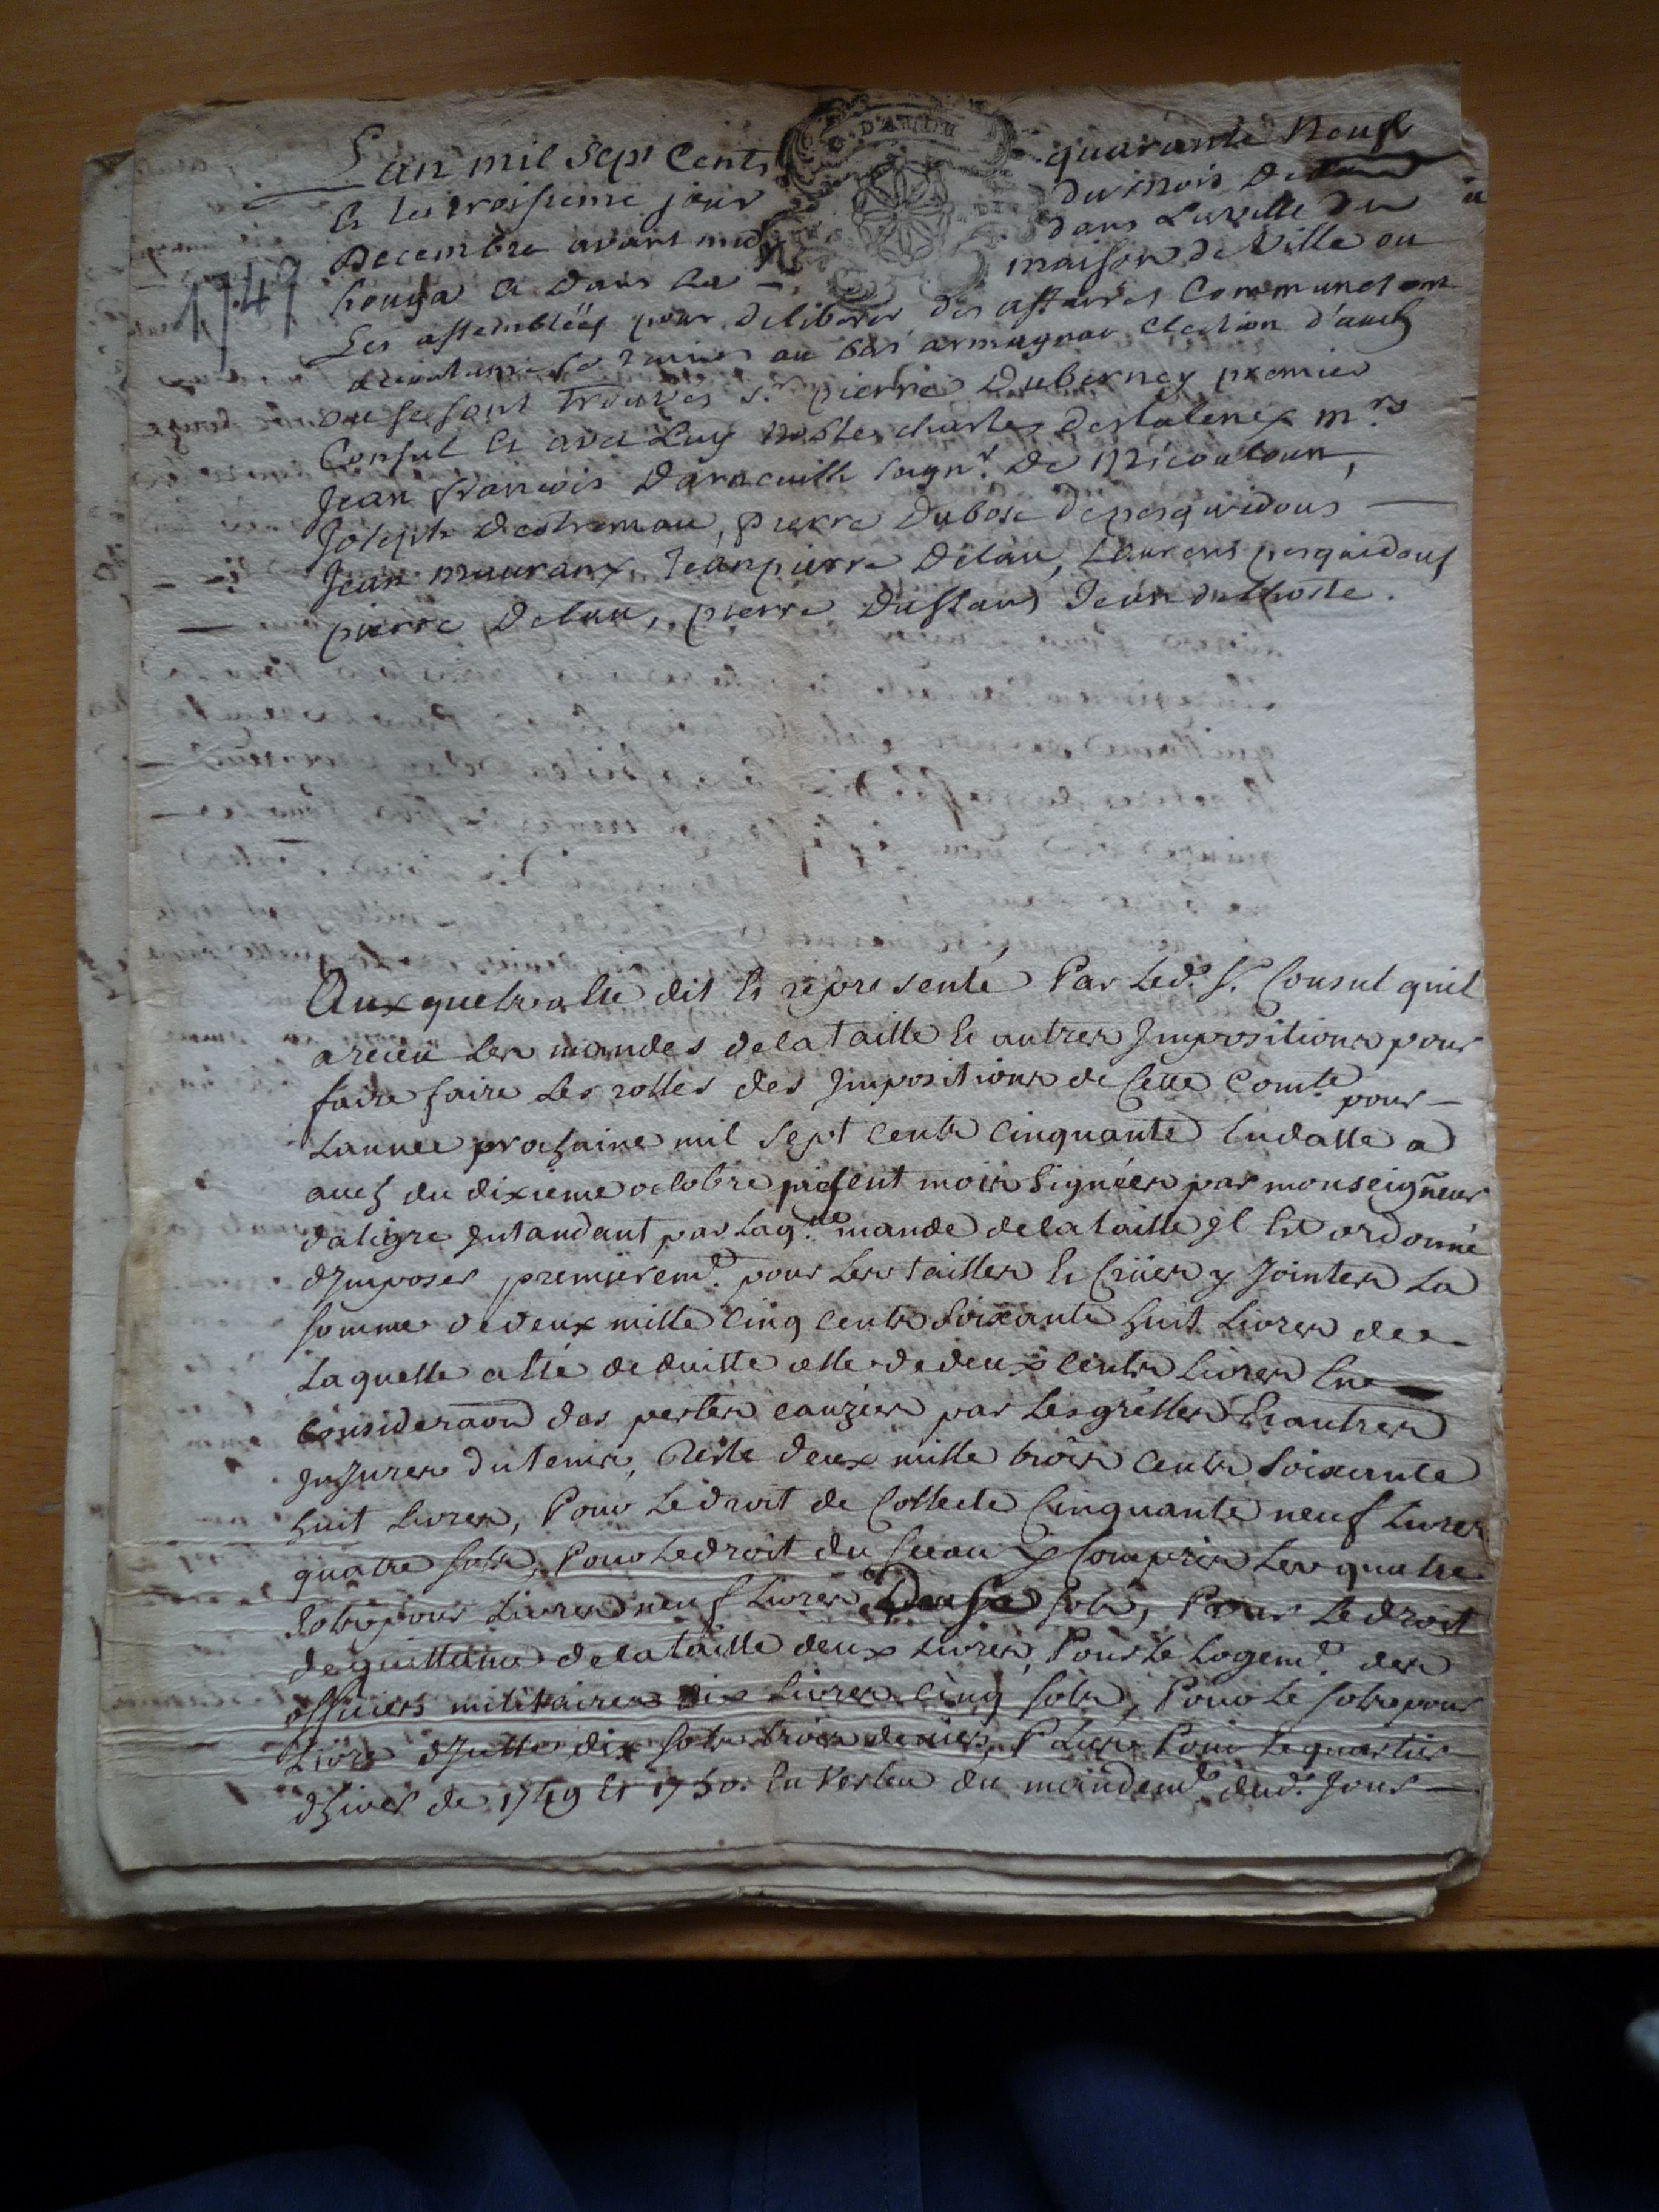 L'an mil sept Cents quarante neuf
Et le troisieme jour du mois de
Decembre avant midy dans La ville du
houga et dans La maison de Ville ou
Les assemblées pour deliberer des affaires Communes ont
accoutumé se tenir au bas armagnac Election d'auch
ou se sont trouvés Sr. pierre Duberney premier
Consul et avec Luy noble charles destalenx mrs
Jean françois Darneuilh seignr. De micouloun,
Joseph destremau, pierre Dubosc depesquidous
Jean mauranx, Jean pierre Delau, Laurens pesquidous
pierre Delau, pierre Dussans Jean
1749
D'AUCH
Auxquels a Eté dit Et représenté Par Led. Sr. Consul quil
a receu Les mandes de la taille Et autres Impositions pour
faire faire Les rolles des Impositions de Cette Comte. pour
Lannee prochaine mil sept cents cinquante En datte a
auch du dixieme octobre present mois Signées par monseigneur
daligre Intandant par Laqlle. mande de la taille Il Est ordonné
dImposer premierem.t pour Les tailles Et Crües y Jointes La
somme de deux mille Cinq Cents Soixante huit Livres de
Laquelle a Eté deduitte celle de deux Cents Livres En
consideraon des pertes cauzées par Les grelles Et autres
Injures du tems, Reste deux mille trois Cents Soixante
huit Livres, Pour Le droit de Collecte Cinquante neuf Livres
quatre sols, Pour Le droit du Sceau y Compris Les quatre
sols pour Livre neuf Livres Douse sols, Pour Le droit
de quittance de la taille deux Livres, Pour Le Logem.t des
officiers militaires dix Livres cinq sols, Pour Le sols pour
Livre dIcelle dix sols trois deniers, Plus Pour Le quartier
dhiver de 1749 Et 1750 En Vertu du mandem.t dud. Jour